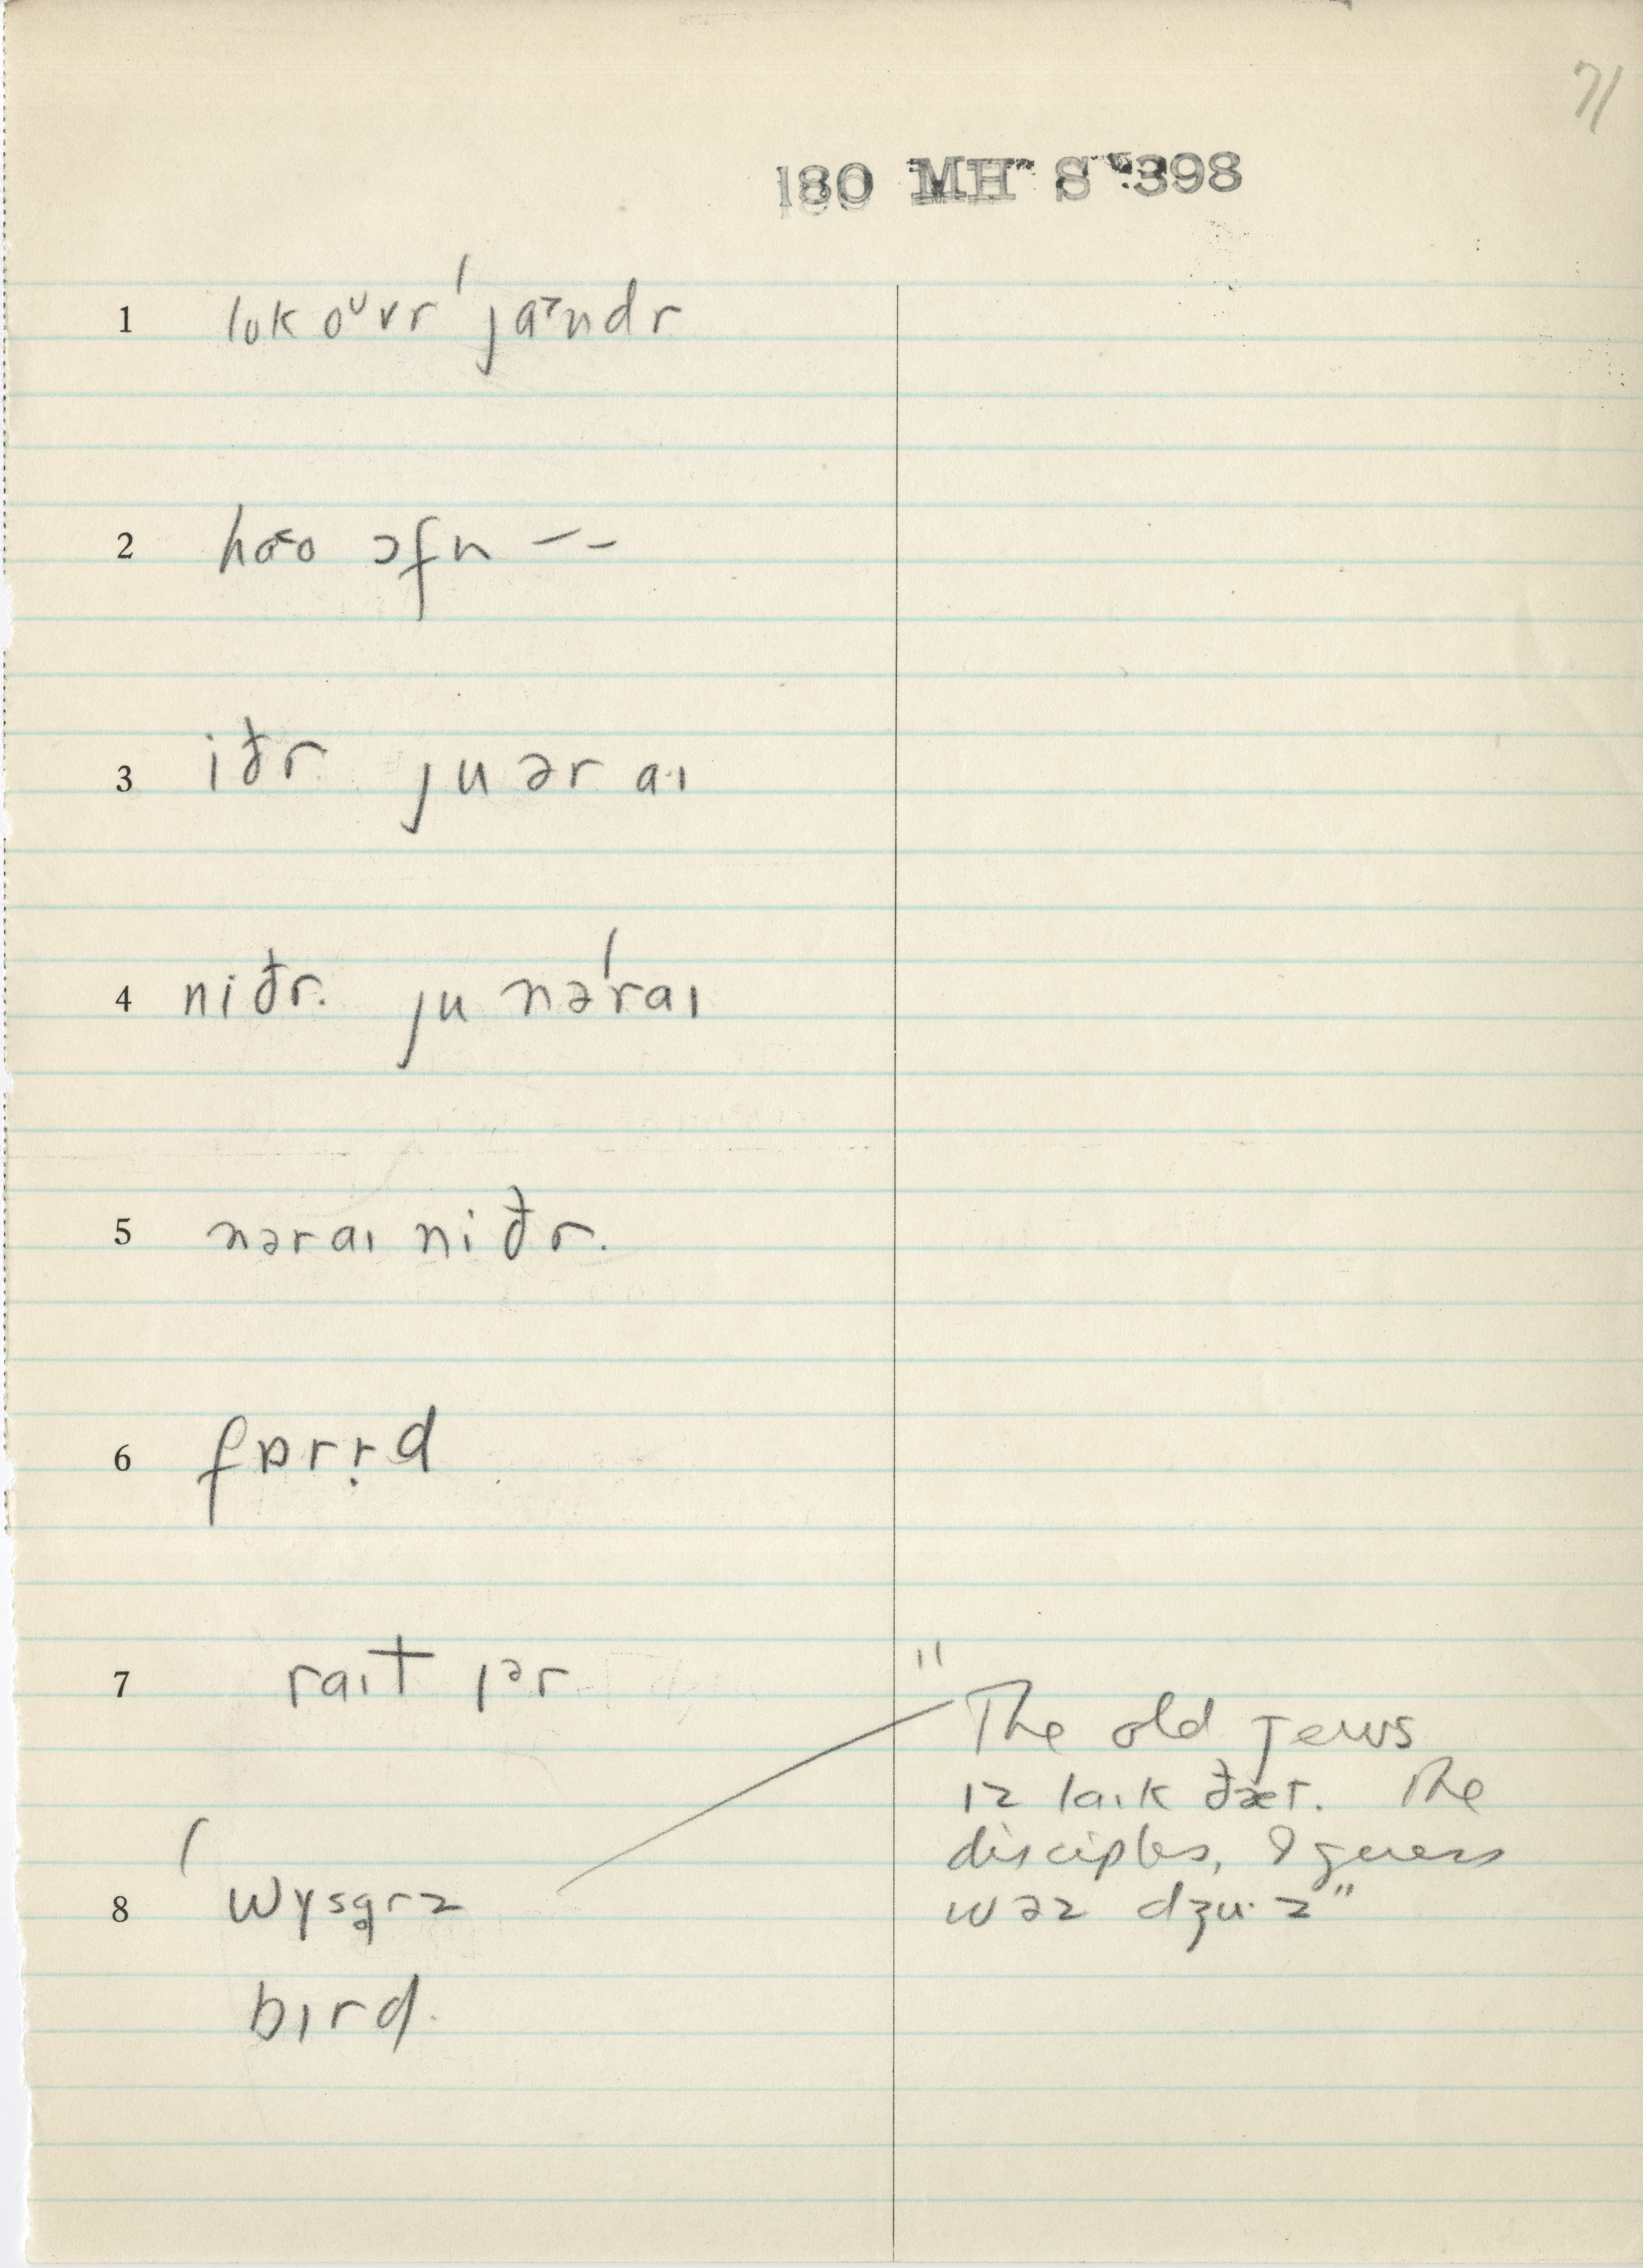 71
180 MH S 398
1 lʊk oᵘvr ˈjaᵊndr
2 haᵋo ɔfn – –
3 iðr ju ər aɪ
4 niðr. ju nəˈraɪ
5 nəraɪ niðr.
6 fɒrṛd
7 raɪt ɪᵊr
8 ˈwɣsqrz
bɪrd.
"The old Jews
ɪz laɪk ðæt. The
disciples, I guess
wəz dʒu·z"